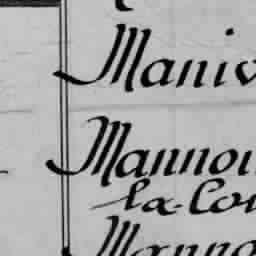 Maniv
Mannou
la-Cou
Manno